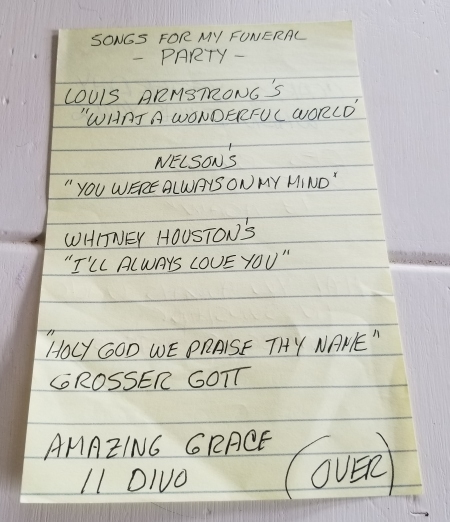 SONGS FOR MY FUNERAL
- PARTY -
LOUIS ARMSTRONG'S
"WHAT A WONDERFUL WORLD'
NELSON'S
"YOU WERE ALWAYS ON MY MIND"
WHITNEY HOUSTON'S
"I'LL ALWAYS LOVE YOU"
"HOLY GOD WE PRAISE THY NAME"
GROSSER GOTT
AMAZING GRACE
Il DIVO (OVER)